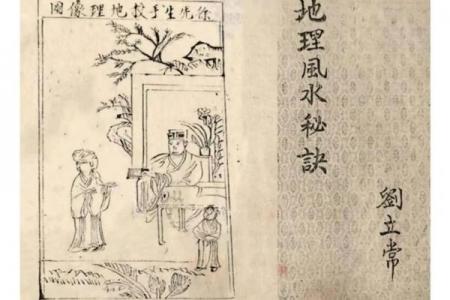 徐先生手授地理像圖
地理風水秘訣
劉立常